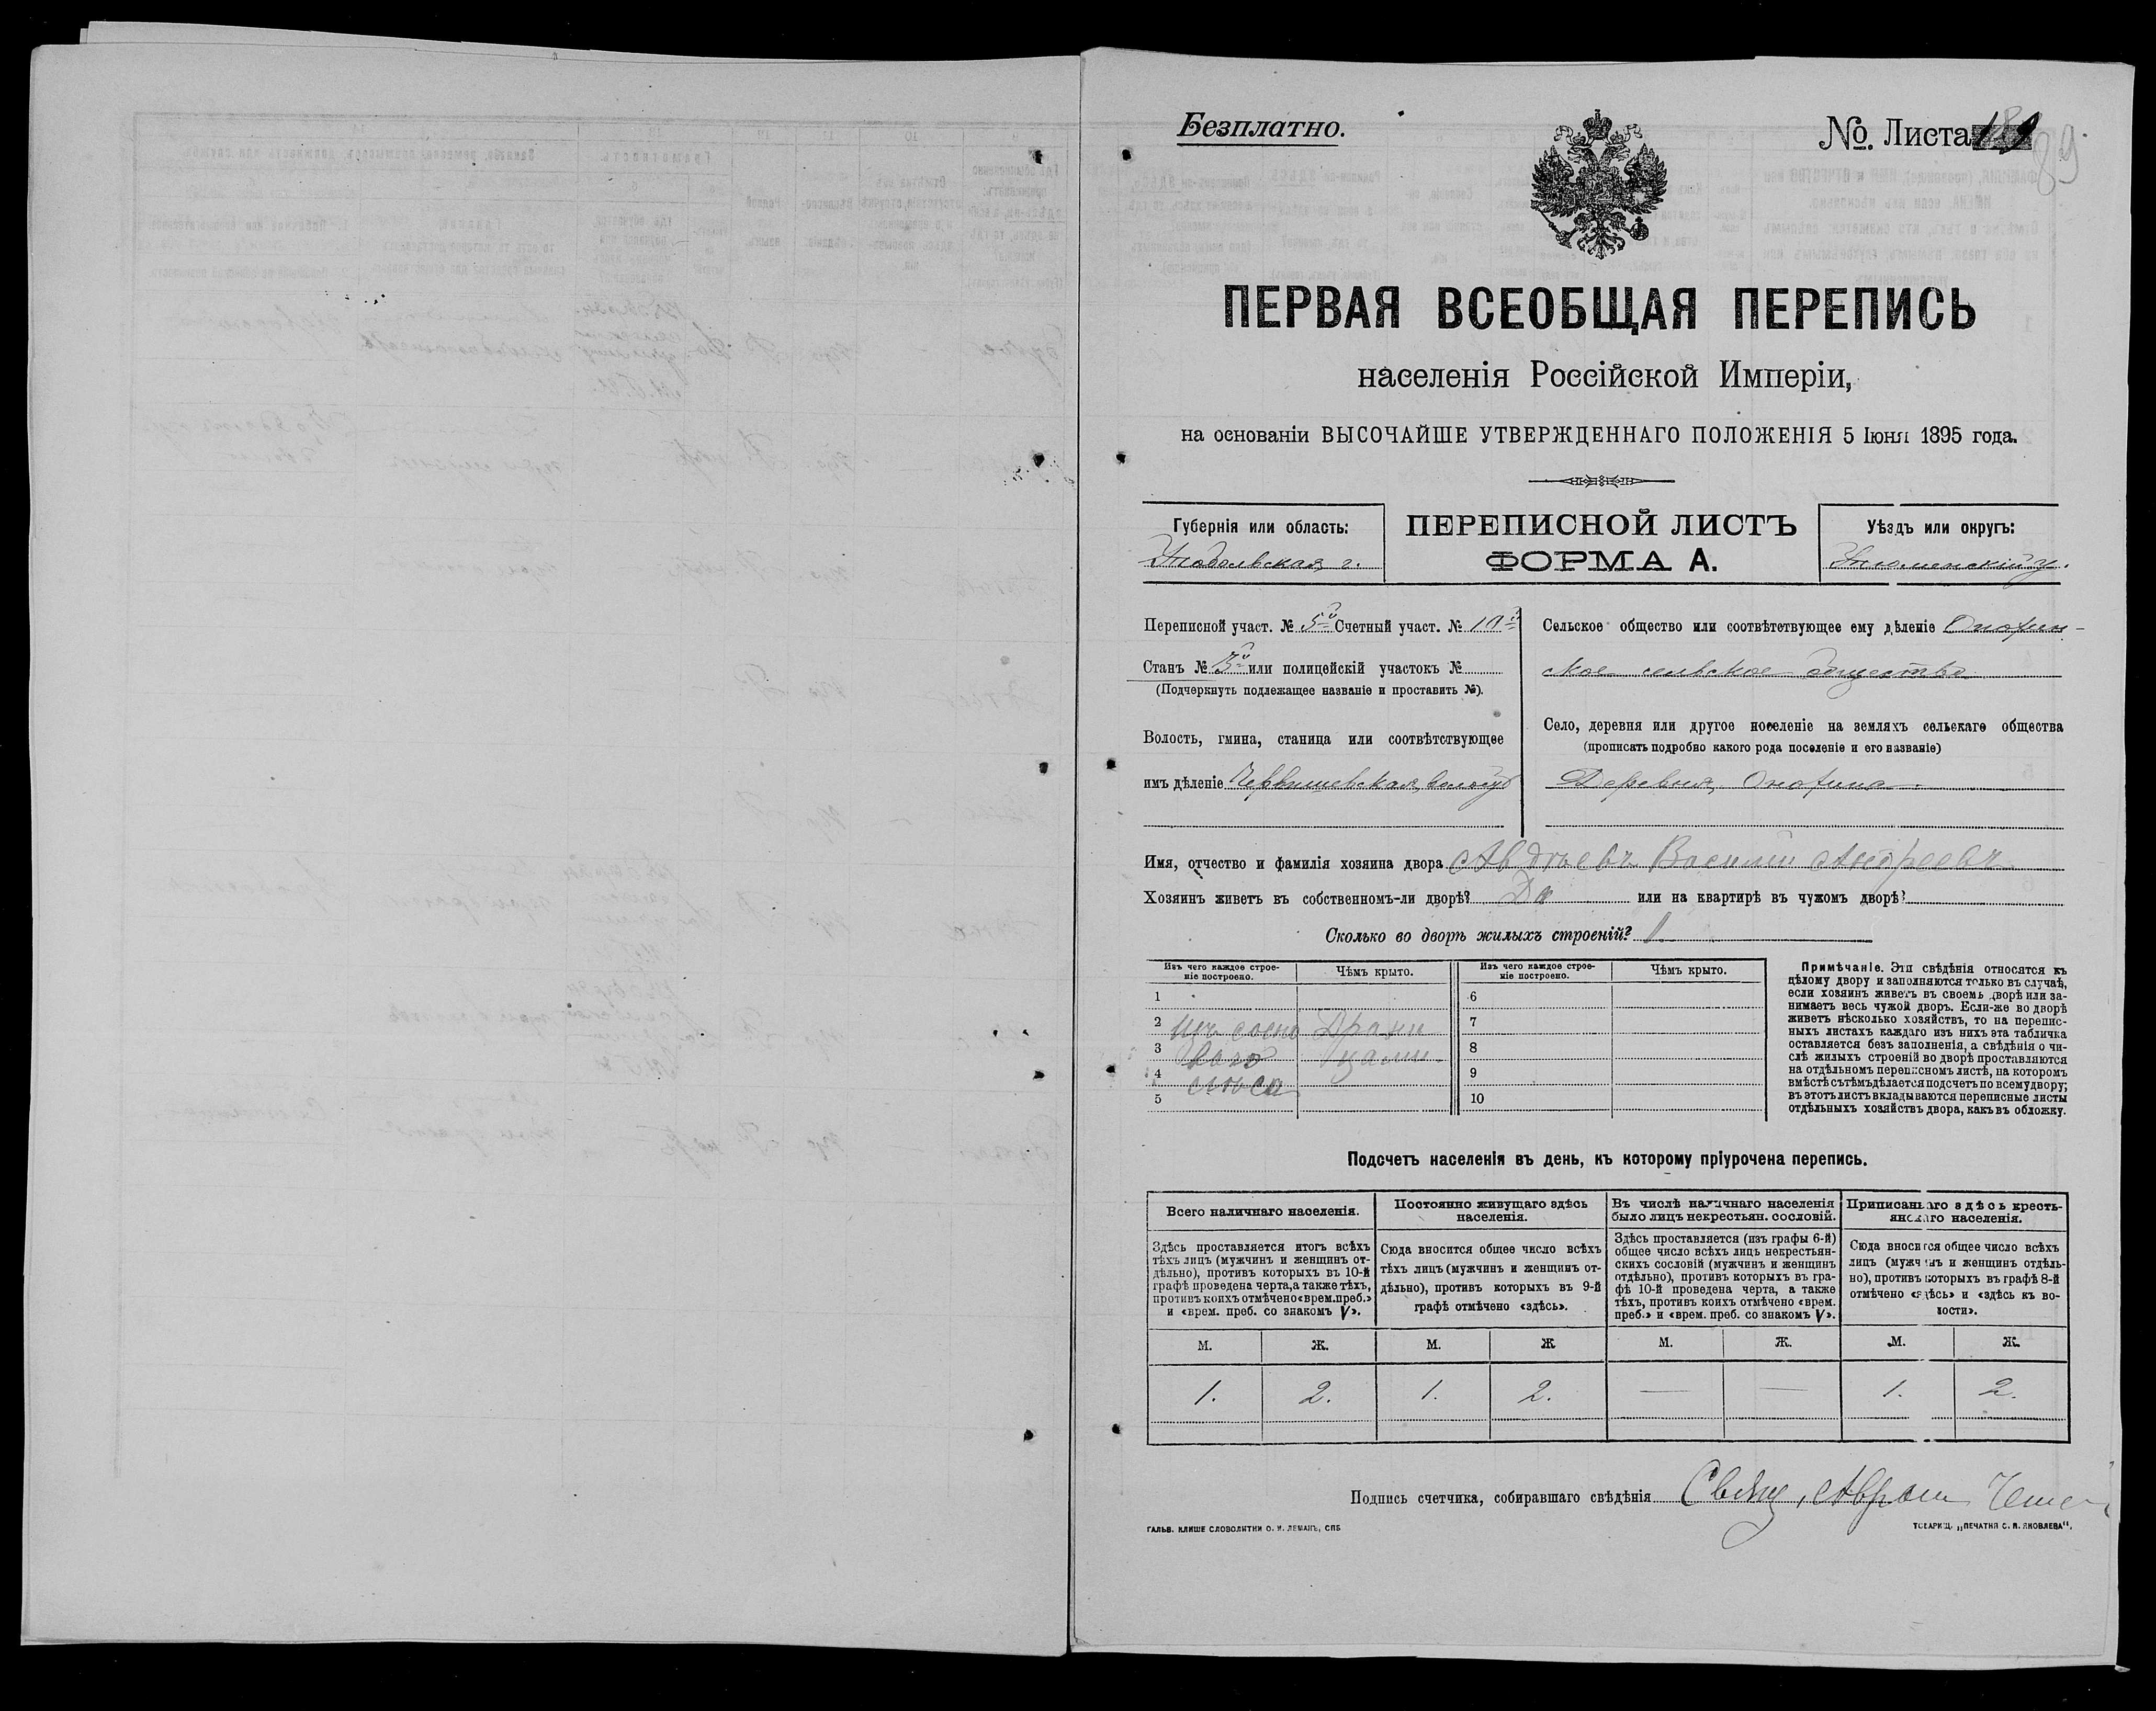 Безплатно.
№ Листа 19
89
ПЕРВАЯ ВСЕОБЩАЯ ПЕРЕПИСЬ
населенія Россійской Имперіи,
на основаніи ВЫСОЧАЙШЕ УТВЕРЖДЕННАГО ПОЛОЖЕНІЯ 5 Іюня 1895 года.
Губернія или область:
Тобольская г.
ПЕРЕПИСНОЙ ЛИСТЪ
ФОРМА А.
Уѣздъ или округъ:
Тюменскій у.
Переписной участ. № 5й Счетный участ. № 10й
Станъ № 3й или полицейскій участокъ №
(Подчеркнуть подлежащее названіе и проставить №).
Волость, гмина, станица или соотвѣтствующее
имъ дѣленіе Червишевская волость
Сельское общество или соотвѣтствующее ему дѣленіе Онохин-
ское сельское общество
Село, деревня или другое поселеніе на земляхъ сельскаго общества
(прописать подробно какого рода поселеніе и его названіе)
Деревня Онохина.
Имя, отчество и фамилія хозяина двора Авдѣевъ Василій Андреевъ
Хозяинъ живетъ въ собственномъ-ли дворѣ? Да или на квартирѣ въ чужомъ дворѣ?
Сколько во дворѣ жилыхъ строеній? 1.
Изъ чего каждое строе-
ніе построено.
Чѣмъ крыто.
Изъ чего каждое строе-
ніе построено.
Чѣмъ крыто.
1
6
2 Изъ сосно Драни
7
3 ваго цами.
8
4 лѣса
9
5
10
Примѣчаніе. Эти свѣдѣнія относятся къ
цѣлому двору и заполняются только въ случаѣ,
если хозяинъ живетъ въ своемъ дворѣ или за-
нимаетъ весь чужой дворъ. Если-же во дворѣ
живетъ нѣсколько хозяйствъ, то на перепис-
ныхъ листахъ каждаго изъ нихъ эта табличка
оставляется безъ заполненія, а свѣдѣнія о чи-
слѣ жилыхъ строеній во дворѣ проставляются
на отдѣльномъ переписномъ листѣ, на которомъ
вмѣстѣ съ тѣмъ дѣлается подсчетъ по всему двору;
въ этотъ листъ вкладываются переписные листы
отдѣльныхъ хозяйствъ двора, какъ въ обложку.
Подсчетъ населенія въ день, къ которому пріурочена перепись.
Всего наличнаго населенія.
Здѣсь проставляется итогъ всѣхъ
тѣхъ лицъ (мужчинъ и женщинъ от-
дѣльно), противъ которыхъ въ 10-й
графѣ проведена черта, а также тѣхъ,
противъ коихъ отмѣчено «врем. преб.»
и «врем. преб. со знакомъ V».
Постоянно живущаго здѣсь
населенія.
Сюда вносится общее число всѣхъ
тѣхъ лицъ (мужчинъ и женщинъ от-
дѣльно), противъ которыхъ въ 9-й
графѣ отмѣчено «здѣсь».
Въ числѣ наличнаго населенія
было лицъ некрестьян. сословій.
Здѣсь проставляется (изъ графы 6-й)
общее число всѣхъ лицъ некрестьян-
скихъ сословій (мужчинъ и женщинъ
отдѣльно), противъ которыхъ въ гра-
фѣ 10-й проведена черта, а также
тѣхъ, противъ коихъ отмѣчено «врем.
преб.» и «врем. преб. со знакомъ V».
Приписаннаго здѣсь кресть-
янскаго населенія.
Сюда вносится общее число всѣхъ
лицъ (мужчинъ и женщинъ отдѣль-
но), противъ которыхъ въ графѣ 8-й
отмѣчено «здѣсь» и «здѣсь къ во-
лости».
М. Ж. М. Ж М. Ж. М. Ж.
1. 2. 1. 2. — — 1. 2.
Подпись счетчика, собиравшаго свѣдѣнія Свящ. Аврам
ГАЛЬВ. КЛИШЕ СЛОВОЛИТНИ О. И. ЛЕМАНЪ, СПБ
ТОВАРИЩ. „ПЕЧАТНЯ С. П. ЯКОВЛЕВА“.